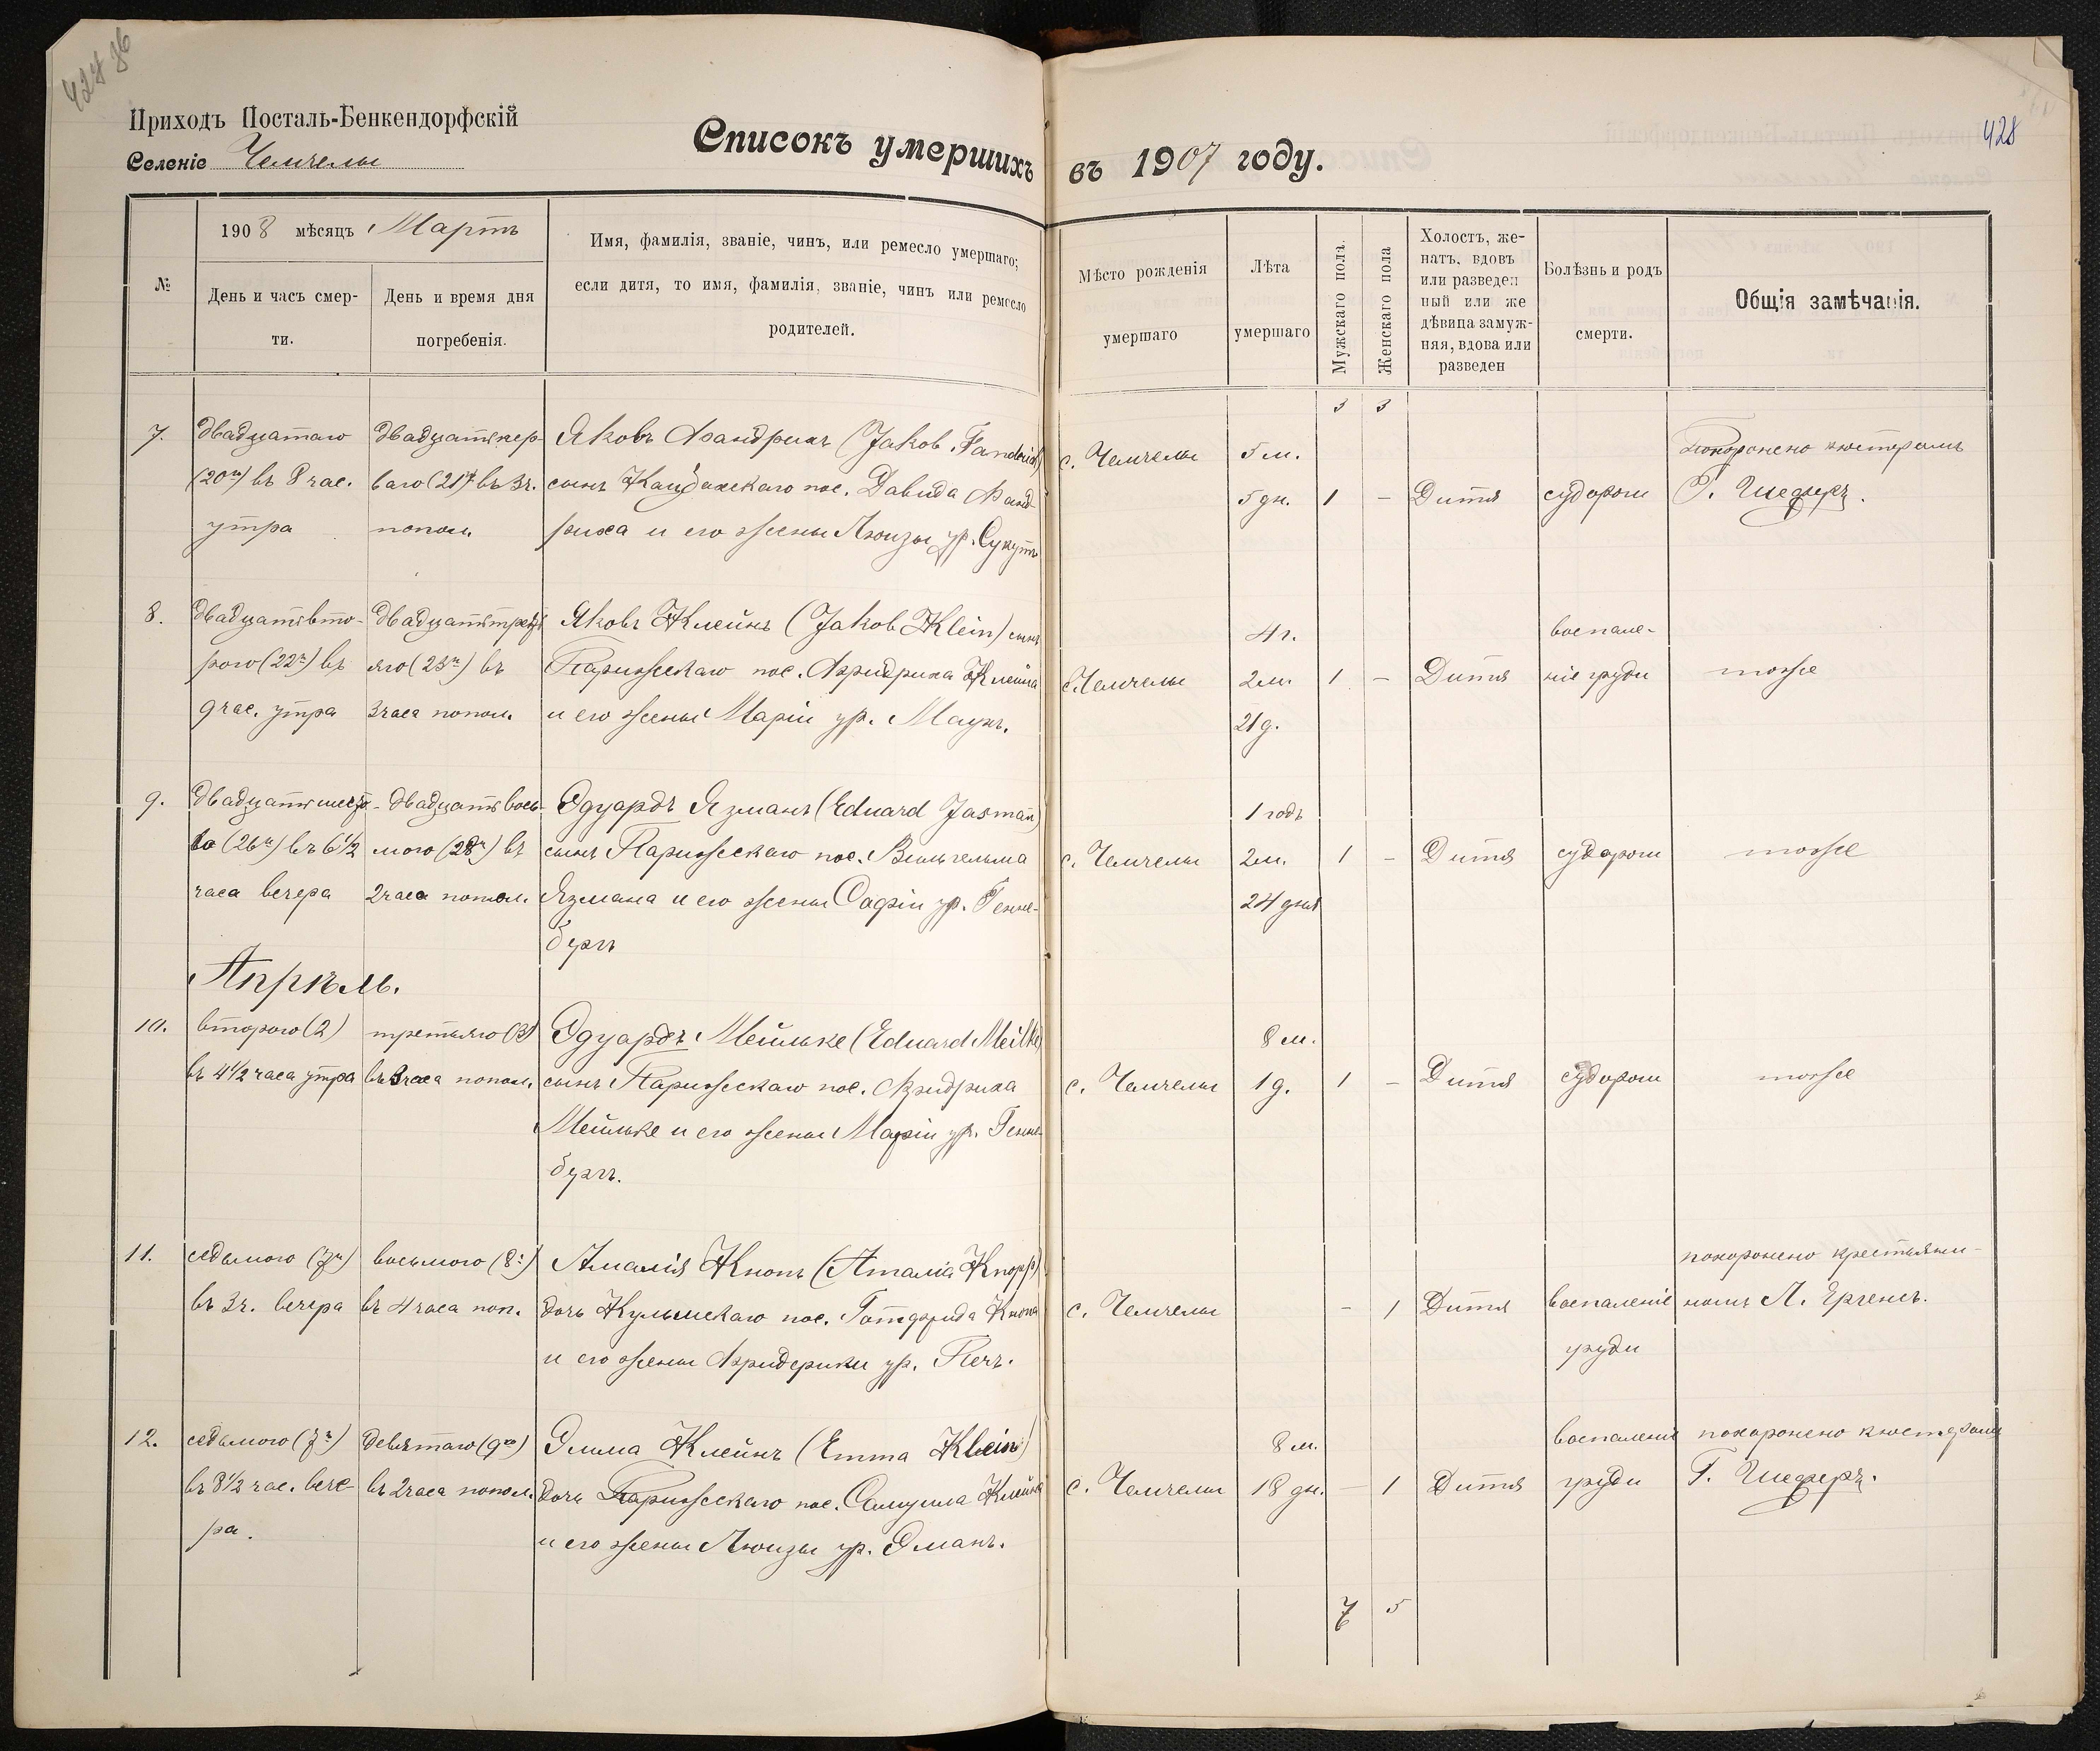 428 об
428
Приходъ Посталь-Бенкендорфскій
Селеніе Чемчелы
Списокъ умершихъ въ 1907 году.
№
1908 мѣсяцъ Мартъ
День и часъ смер-
ти.
День и время дня
погребенія.
Имя, фамилія, званіе, чинъ, или ремесло умершаго;
если дитя, то имя, фамилія, званіе, чинъ или ремесло
родителей.
Мѣсто рожденія
умершаго
Лѣта
умершаго
Мужскаго пола.
Женскаго пола
Холостъ, же-
натъ, вдовъ
или разведен
ный или же
дѣвица замуж-
няя, вдова или
разведен
Болѣзнь и родъ
смерти.
Общія замѣчанія.
3 3
7.
двадцатаго
(20го) въ 8 час.
утра
двадцатьпер-
ваго (21го) въ 3ч.
попол.
Яковъ Фандрихъ (Jakob Fandrich)
сынъ пос. Давида Фанд-
риха и его жены Люизы ур.
с. Чемчелы
5 м.
5 дн.
1
-
Дитя
судороги
Похоронено кюстеромъ
Г. Шеферъ.
8.
двадцатьвто-
рого (22го) въ
9 час. утра
двадцатьтреть
яго (23го) въ
3 часа попол.
Яковъ Клейнъ (Jakob Klein) сынъ
Парижскаго пос. Фридриха Клейна
и его жены Маріи ур.
с. Чемчелы
4 г.
2 м.
21 д.
1
-
Дитя
воспале-
ніе груди
тоже
9.
двадцатьшесто-
го (26го) въ 6 1/2
часа вечера
двадцатьвось-
мого (28го) въ
2 часа попол.
Эдуардъ Язманъ (Eduard Jasman)
сынъ Парижскаго пос. Вильгельма
Язмана и его жены Софіи ур. Генне-
бергъ
с. Чемчелы
1 годъ
2 м.
24 дня
1
-
Дитя
судороги
тоже
Апрѣль.
10.
второго (2)
въ 4 1/2 часа утра
третьяго (3)
въ 3 часа попол.
Эдуардъ Мейльке (Eduard Meilke)
сынъ Парижскаго пос. Фридриха
Мейльке и его жены Маріи ур. Генне-
бургъ.
с. Чемчелы
8 м.
1 д.
1
-
Дитя
судороги
тоже
11.
седьмого (7го)
въ 3 ч. вечера
восьмого (8.)
въ 4 часа поп.
Амалія Кнопъ (Amalia Knopp)
дочь Кульмскаго пос. Готфрида Кнопа
и его жены Фридерики ур.
с. Чемчелы
-
1
Дитя
воспаленіе
груди
похоронено крестьяни-
номъ Л.
12.
седьмого (7го)
въ 8 1/2 час. вече-
ра.
девятаго (9го)
въ 2 часа попол.
Эмма Клейнъ (Emma Klein)
дочь Парижскаго пос. Самуила Клейна
и его жены Люизы ур. Эманъ.
с. Чемчелы
8 м.
18 дн.
-
1
Дитя
воспаленіе
груди
похоронено кюстеромъ
Г. Шеферъ.
7 5